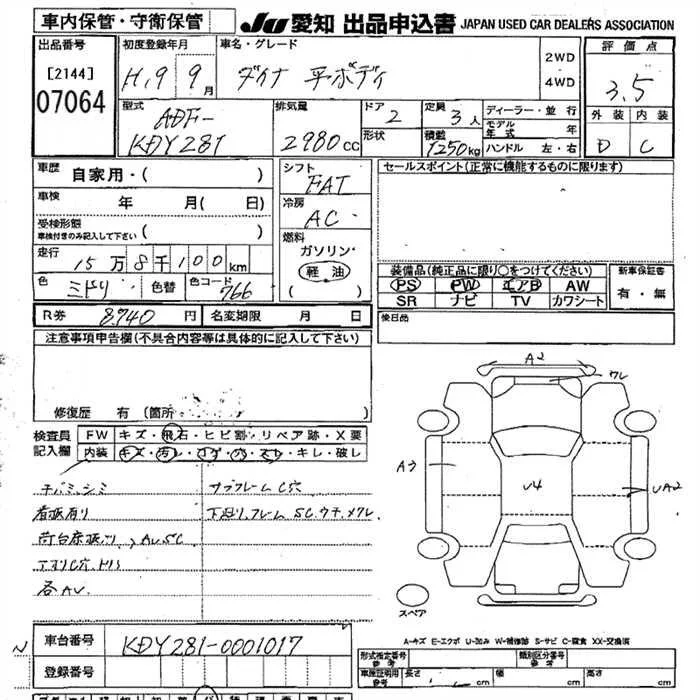 車内保管・守衛保管
JU 愛知 出品申込書 JAPAN USED CAR DEALERS ASSOCIATION
出品番号
[2144]
07064
初度登録年月
H.9 9月
車名・グレード
ダイナ 平ボディ
2WD
4WD
評価点
3.5
外装 内装
D C
型式
ADF-
KDY281
排気量
2980cc
ドア
2
形状
定員
3人
積載
1250kg
ディーラー・並行
モデル年式 年
ハンドル 左・右
車歴
自家用・( )
車検
年 月( 日)
受検形態
車検付きのみ記入して下さい
走行
15万8千100km
色
ミドリ
色替
色コード
766
シフト
FAT
冷房
AC
燃料
ガソリン・
軽油
( )
セールスポイント(正常に機能するものに限ります)
装備品(純正品に限り○をつけてください)
PS PW エアB AW
SR ナビ TV カワシート
新車保証書
有・無
R券 8,940円
名変期限 月 日
検日品
注意事項申告欄(不具合内容等は具体的に記入して下さい)
修復歴 有(箇所 )
検査員記入欄
FW キズ・飛石・ヒビ割・リペア跡・X要
内装 キズ・汚レ・コゲ・穴・スレ・キレ・破レ
サブフレームC穴
看板有り
下廻り,フレームSC,
各AU
A2
ワレ
A3
U4
UA2
スペア
A-キズ E-エクボ U-凹み W-補修跡 S-サビ C-腐食 XX-交換済
車台番号
KDY281-0001017
登録番号
形式指定番号
参考
類別区分番号
参考
車庫証明用
参考
長さ cm
幅 cm
高さ cm